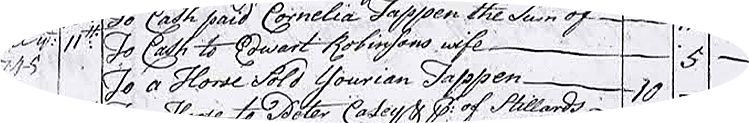 To Cash paid Cornelia Tappen the Sum of
11th To Cash to Edwart Robinsons wife 5
To a Horse Sold Yourian Tappen 10
To Horse to Peter Casey & Pr. of Stillards